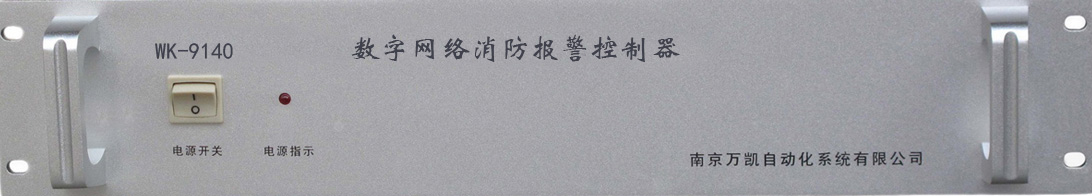 WK-9140 数字网络消防报警控制器
电源开关 电源指示
南京万凯自动化系统有限公司